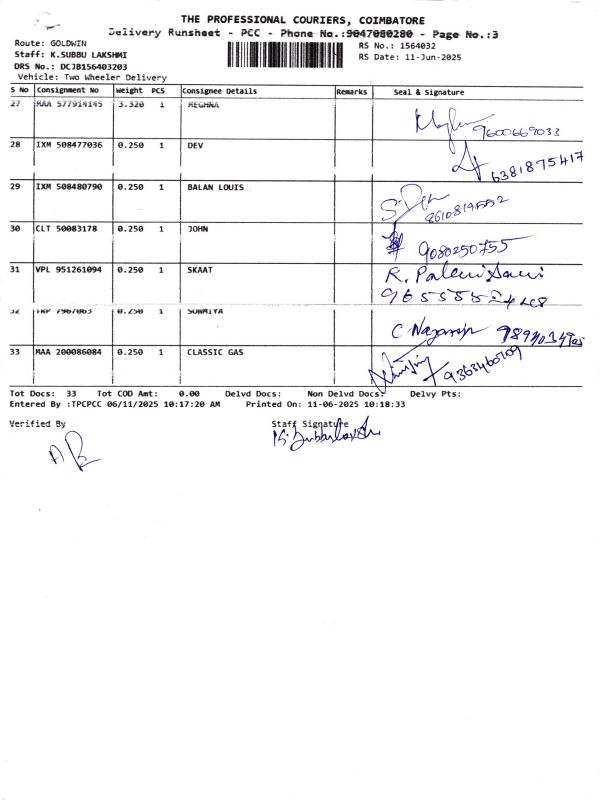 THE PROFESSIONAL COURIERS, COIMBATORE
Delivery Runsheet - PCC - Phone No.:9047080280 - Page No.:3
Route: GOLDWIN
RS No.: 1564032
Staff: K.SUBBU LAKSHMI
RS Date: 11-Jun-2025
DRS No.: DCJB156403203
Vehicle: Two Wheeler Delivery
S No Consignment No Weight PCS Consignee Details Remarks Seal & Signature
27 MAA 577914145 3.320 1 MEGHNA
9600669033
28 IXM 508477036 0.250 1 DEV
6381875417
29 IXM 508480790 0.250 1 BALAN LOUIS
30 CLT 50083178 0.250 1 JOHN
9080250755
31 VPL 951261094 0.250 1 SKAAT
R. Palani Sami
32 TRP 7967063 0.250 1 SOWMIYA
33 MAA 200086084 0.250 1 CLASSIC GAS
9363460709
Tot Docs: 33 Tot COD Amt: 0.00 Delvd Docs: Non Delvd Docs: Delvy Pts:
Entered By :TPCPCC 06/11/2025 10:17:20 AM Printed On: 11-06-2025 10:18:33
Verified By Staff Signature